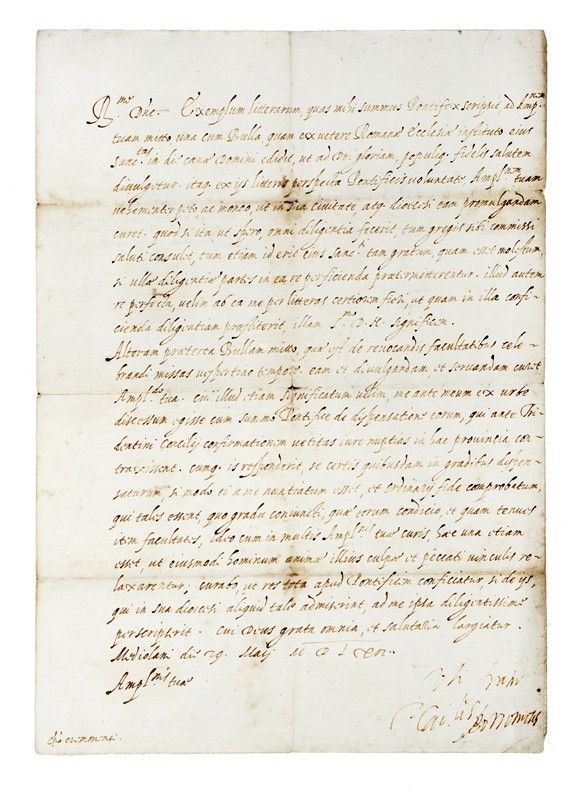 R.me Dne. Exemplum litterarum, quas mihi summus Pontifex scripsit, ad Ampl.nem
tuam mitto una cum Bulla quam ex vetere Romanæ Ecclesiæ instituto eius
Sanc.tas in die cænæ Domini edidit, ut ad Dei gloriam, populiq. fidelis salutem
divulgetur. itaq. ex ijs litteris perspecta Pontificis voluntate Ampl.nem tuam
vehementer peto, ac moneo, ut in ista civitate, atq. diocesi eam promulgandam
curet. quod si ita, ut spero, omni diligentia fecerit, tum gregis sibi commissi
saluti consulet, tum etiam id erit eius Sanc.ti tam gratum, quam esset molestum,
si ullæ diligentiæ partes in ea re perficienda prætermitterentur. illud autem
re perfecta, velim ab ea me per litteras certiorem fieri, ut quam in illa confi-
cienda diligentiam præstiterit, illam S.mo D. N. significem.
Alteram præterea Bullam mitto, quæ est de revocandis facultatibus cele-
brandi missas vespertino tempore. eam et divulgandam et servandam curet
Ampl.do tua. cui illud etiam significatum velim, me ante meum ex urbe
discessum egisse cum summo Pontifice de dispensatione eorum, qui ante Tri-
dentini Concilij confirmationem vetitas iure nuptias in hac provincia con-
traxissent. cumq. is responderit, se certis quibusdam in gradibus dispen-
saturum, si modo ei a me nuntiatum esset, et ordinarij fide comprobatum,
qui tales essent, quo gradu coniuncti, quæ eorum condicio, et quam tenues
item facultates, ideo cum in multis Ampl.nis tuæ curis, hæc una etiam
esset, ut eiusmodi hominum animæ illius culpæ et peccati vinculis re-
laxarentur, curabo, ut res tota apud Pontificem conficiatur si de ijs,
qui in sua diocesi aliquid tale admiserint, ad me ipsa diligentissime
perscripserit. Cui Deus grata omnia, et salutaria largiatur.
Mediolani die 29. Maij
Ampl.nis tuæ
Uti frater
Car.lis Borromeus